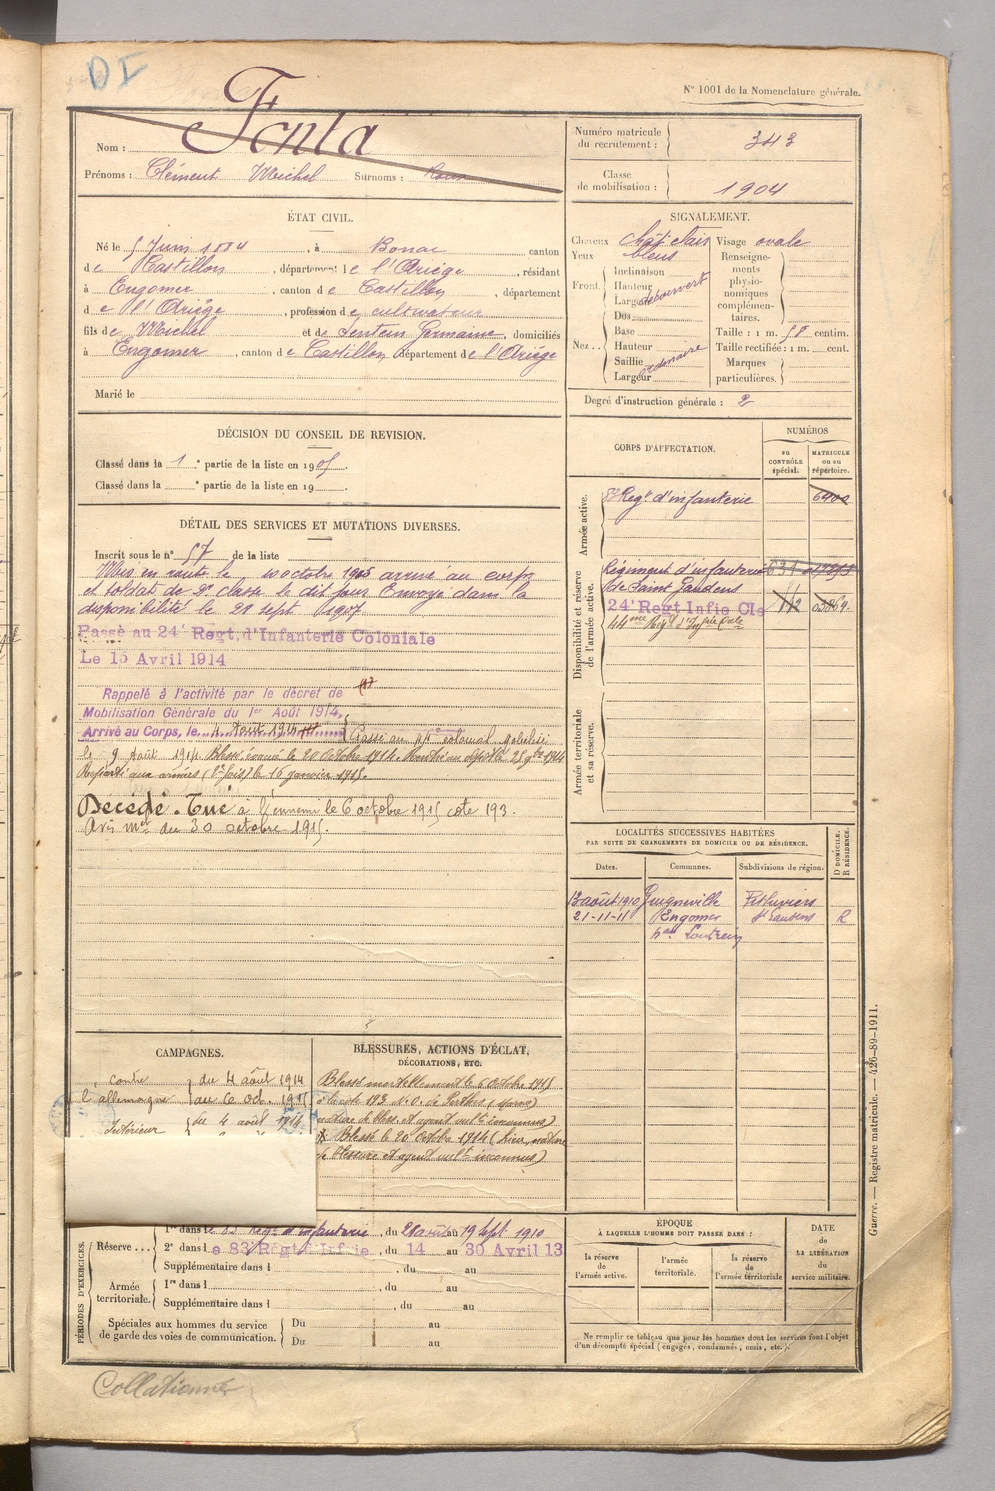 DI
N° 1001 de la Nomenclature générale.
Nom : Fonta
Prénoms : Clément Michel Surnoms :
Numéro matricule du recrutement : 343
Classe de mobilisation : 1904
ÉTAT CIVIL.
Né le 5 Juin 1884, à Bonac canton
de Castillon, département de l'Ariège, résidant
à Engomer, canton de Castillon, département
de l'Ariège, profession de cultivateur
fils de Michel et de Sentein Germaine, domiciliés
à Engomer, canton de Castillon département de l'Ariège
Marié le
SIGNALEMENT.
Cheveux chât clair Visage ovale
Yeux bleus
Front. Inclinaison
Hauteur
Largeur découvert
Nez.. Dos
Base
Hauteur
Saillie
Largeur ordinaire
Renseignements physionomiques complémentaires.
Taille : 1 m. 58 centim.
Taille rectifiée : 1 m. cent.
Marques particulières.
Degré d'instruction générale : 2
DÉCISION DU CONSEIL DE REVISION.
Classé dans la 1e partie de la liste en 1905.
Classé dans la e partie de la liste en 19 .
DÉTAIL DES SERVICES ET MUTATIONS DIVERSES.
Inscrit sous le n° 57 de la liste
Mis en route le 10 octobre 1905 arrivé au corps
et soldat de 2e classe le dit jour Envoyé dans la
disponibilité le 21 sept 1907.
Passé au 24e Regt. d'Infanterie Coloniale
Le 15 Avril 1914
Rappelé à l'activité par le décret de
Mobilisation Générale du 1er Août 1914,
Arrivé au Corps, le 4 Aout 1914 Passé au 44e colonial Mobilisé
le 9 Août 1914. Blessé évacué le 20 Octobre 1914. Rentré au dépôt le 25 9bre 1914
Reparti aux armées (2e fois) le 16 janvier 1915.
Décédé. Tué à l'ennemi le 6 octobre 1915 cote 193.
Avis mel du 30 octobre 1915.
CORPS D'AFFECTATION.
NUMÉROS
au CONTRÔLE spécial.
MATRICULE ou au répertoire.
Armée active.
83 Regt d'infanterie 6402
Disponibilité et réserve de l'armée active.
Régiment d'infanterie 631
de Saint Gaudens
24e Regt Infie Cle 112 03869
44me Regt d'Infie Cole
Armée territoriale et sa réserve.
LOCALITÉS SUCCESSIVES HABITÉES
PAR SUITE DE CHANGEMENTS DE DOMICILE OU DE RÉSIDENCE.
Dates. Communes. Subdivisions de région. D DOMICILE. R RÉSIDENCE.
13 août 1910 Guigneville Pithiviers
21-11-11 Engomer St Gaudens R
CAMPAGNES.
contre l'allemagne du 4 août 1914
au 6 oct. 1915
Intérieur du 4 août 1914
BLESSURES, ACTIONS D'ÉCLAT,
DÉCORATIONS, ETC.
Blessé mortellement le 6 Octobre 1915
à la cote 193 N.O. de Perthes (Marne)
nature de bless. et agent vulnt inconnus)
Blessé le 20 Octobre 1914 (Lieu, nature
de blessure et agent vulnt inconnus)
PÉRIODES D'EXERCICES.
Réserve ... 1re dans le 83 Régt d'infanterie, du 28 août au 19 Sept 1910
2e dans le 83 Régt d'Infie, du 14 au 30 Avril 13
Supplémentaire dans l , du au
Armée territoriale. 1re dans l , du au
Supplémentaire dans l , du au
Spéciales aux hommes du service de garde des voies de communication. Du au
Du au
ÉPOQUE
À LAQUELLE L'HOMME DOIT PASSER DANS :
la réserve de l'armée active.
l'armée territoriale.
la réserve de l'armée territoriale
DATE de LA LIBÉRATION du service militaire.
Ne remplir ce tableau que pour les hommes dont les services font l'objet
d'un décompte spécial (engagés, condamnés, omis, etc.).
Guerre. — Registre matricule. — 426-89-1911.
Collationné